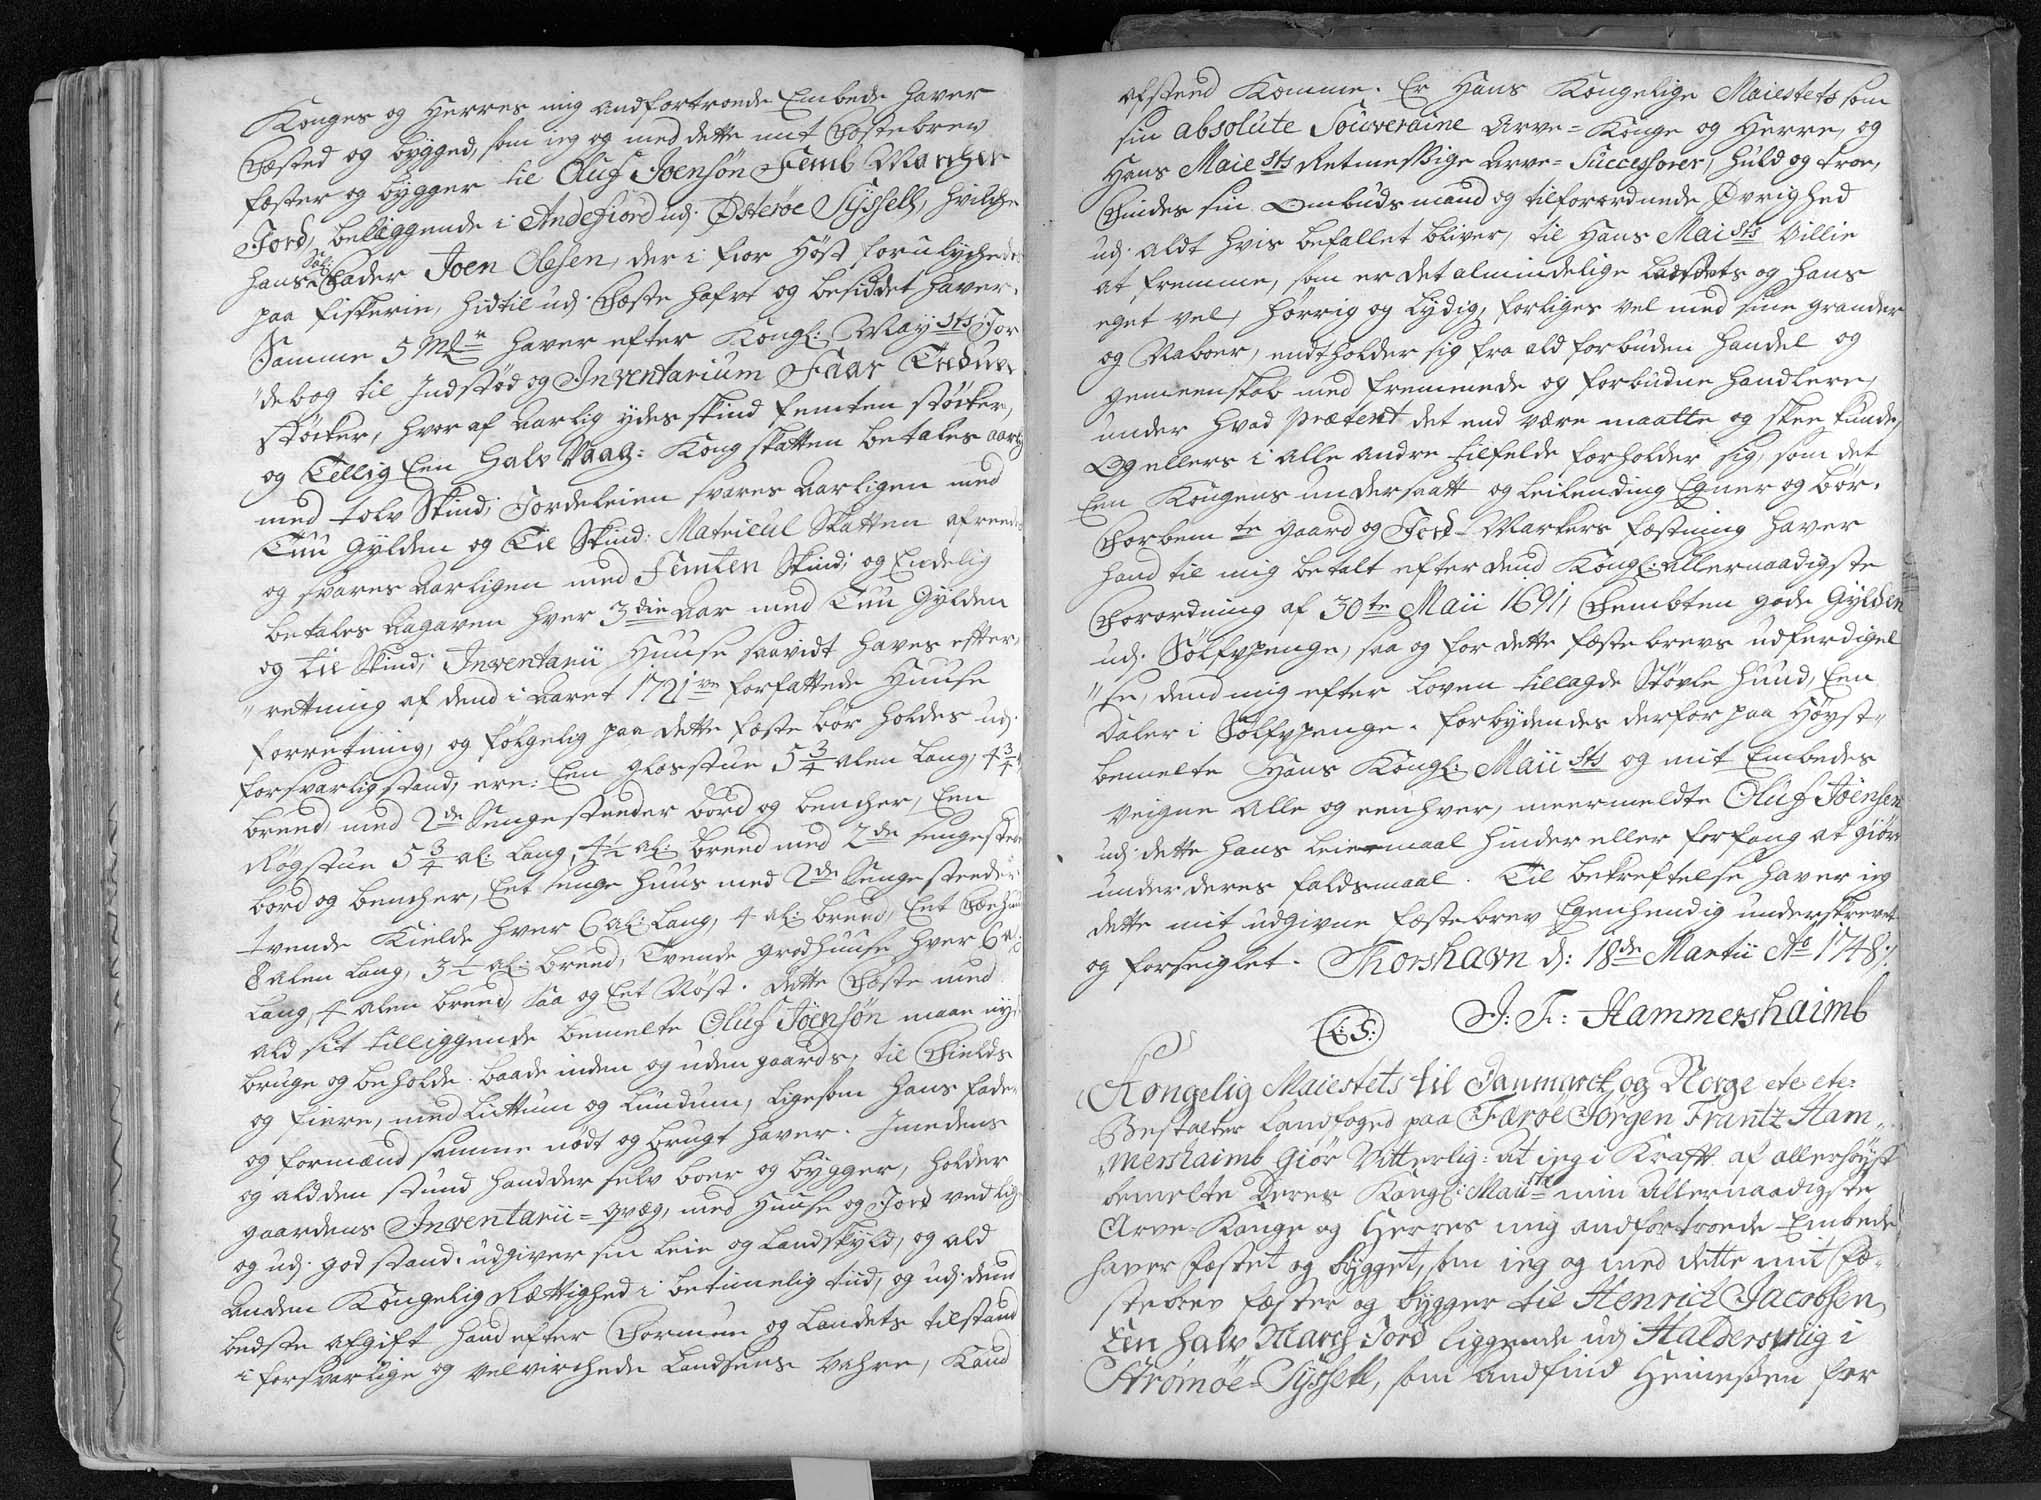 Konges og Herres mig andfortroede Embede haver
Fæsted og bygged, som ieg og med dette mit Fæstebrev
fæster og bygger til Oluf Joensön Femb Marcher
Jord, beliggende i Andefiord udj Østeröe Syssell, hvilche
hans Sal: Fader Joen Olesen, der i fior Höst forulychedes
paa fiskerie, hidtil udj Fæste hafvt og besiddet haver.
Samme 5 Mk haver efter Kongl: Mayts Jor
"debog til Indstöd og Inventarium Faar Tredive
støcker, hvor af aarlig ydes skind femten støcker,
og Tellig Een Halv Vaag: Kong skatten betales aarlig
med tolv Skind; Jordeleien svares aarligen med
Tuu Gylden og Tie Skind: Matricul Skatten afreendes
og svares aarligen med Femten Skind; og Endelig
betales Aagaven hver 3die Aar med Tuu Gylden
og tie Skind; Inventarii Huuse saavidt haves efter,,
"rettning af dend i Aaret 1721ve forfattede Huuse
forretning, og fölgelig paa dette fæste bör holdes udj
forsvarlig stand, ere: Een glasstue 5 3/4 alen lang, 4 3/4
breed, med 2de Sengesteeder bord og bencher, Een
Rögstue 5 3/4 al: lang, 4 1/2 al: breed med 2de sengesteder
bord og bencher, Eet senge huus med 2de Sengesteeder
tvende Kielde hver 6 al: lang, 4 al: breed, Eet Fæehuus
8 alen lang, 3 1/2 al: breed, Tvende grodhuuse hver 6 al:
lang, 4 alen breed, saa og Eet Nöst. Dette Fæste med
ald sit tilliggende bemelte Oluf Joensön maae ny,,
bruge og beholde baade inden og uden gaards, til Fields
og fiere, med luttum og lundum, ligesom hans fader
og formænd samme nödt og brugt haver. Imedens
og ald den stund hand der selv boer og bygger, holder
gaardens Inventarii=qvæg, med Huuse og Jord vedlige
og udj god stand, udgiver sin leie og landskyld, og ald
anden Kongelig Rættighed i betimelig tiid, og udj dend
bedste afgift hand efter Formue og landets tilstand
i forsvarlige og velvirchede landsens Vahre, Kand
afsteed Komme. Er Hans Kongelige Maiestets som
sin absolute Souveraine Arve=Konge og Herre, og
Hans Maiests Retmessige Arve=Successorer, huld og troe,
Findes sin Ombudsmand og tilforordnede Øvrighed
udj aldt hvis befallet bliver, til Hans Maists Villie
at fremme, som er det almindelige bædstes og hans
eget vel, hørrig og lydig, forliges vel med sine grander
og Naboer, endtholder sig fra ald forbuden handel og
gemeenskab med fremmede og forbudne handlere,
under hvad prætext det end være maatte og skee kunde,
Og ellers i alle andre tilfelde forholder sig, som det
Een Kongens undersaatt og leilending Egner og bör.
Forbemte gaard og Jord-Markers fæstning haver
hand til mig betalt efter dend Kongl: Allernaadigste
Forordning af 30te Maii 1691, Fembten gode Gylden
udj Sölfvpenge, saa og for dette fæstebrevs udferdigel
"se, dend mig efter loven tillagde Støvle Huud, Een
daler i Sölfvpenge. forbydendes derfor paa Höyst,,
bemelte Hans Kongl: Maiists og mit Embedes
veigne alle og eenhver, meermeldte Oluf Joensen
udj dette hans leiermaal hinder eller forfang at giöre
under deres faldsmaal. Til bekreftelse haver ieg
dette mit udgivne fæstebrev Egenhendig underskrevet
og forseiglet. Thorshavn d: 18de Martii Ao 1748/.
L: S: J: F: Hammershaimb
Kongelig Maiestets til Danmarck og Norge etc etc:
Bestalter Landfoged paa Færöe Jörgen Frantz Ham,,
"mershaimb Giör Vitterlig: At ieg i Krafft af allerhöyst
bemelte Deres Kongl: Maiits min Allernaadigste
Arve=Konge og Herres mig andfortroede Embede
haver fæstet og bygget, som ieg og med dette mit Fæ,,
stebrev fæster og bygger til Henrich Jacobsen
Een halv March Jord liggende udj Haldersviig i
Strömöe=Syssell, som Andfind Heinesen for